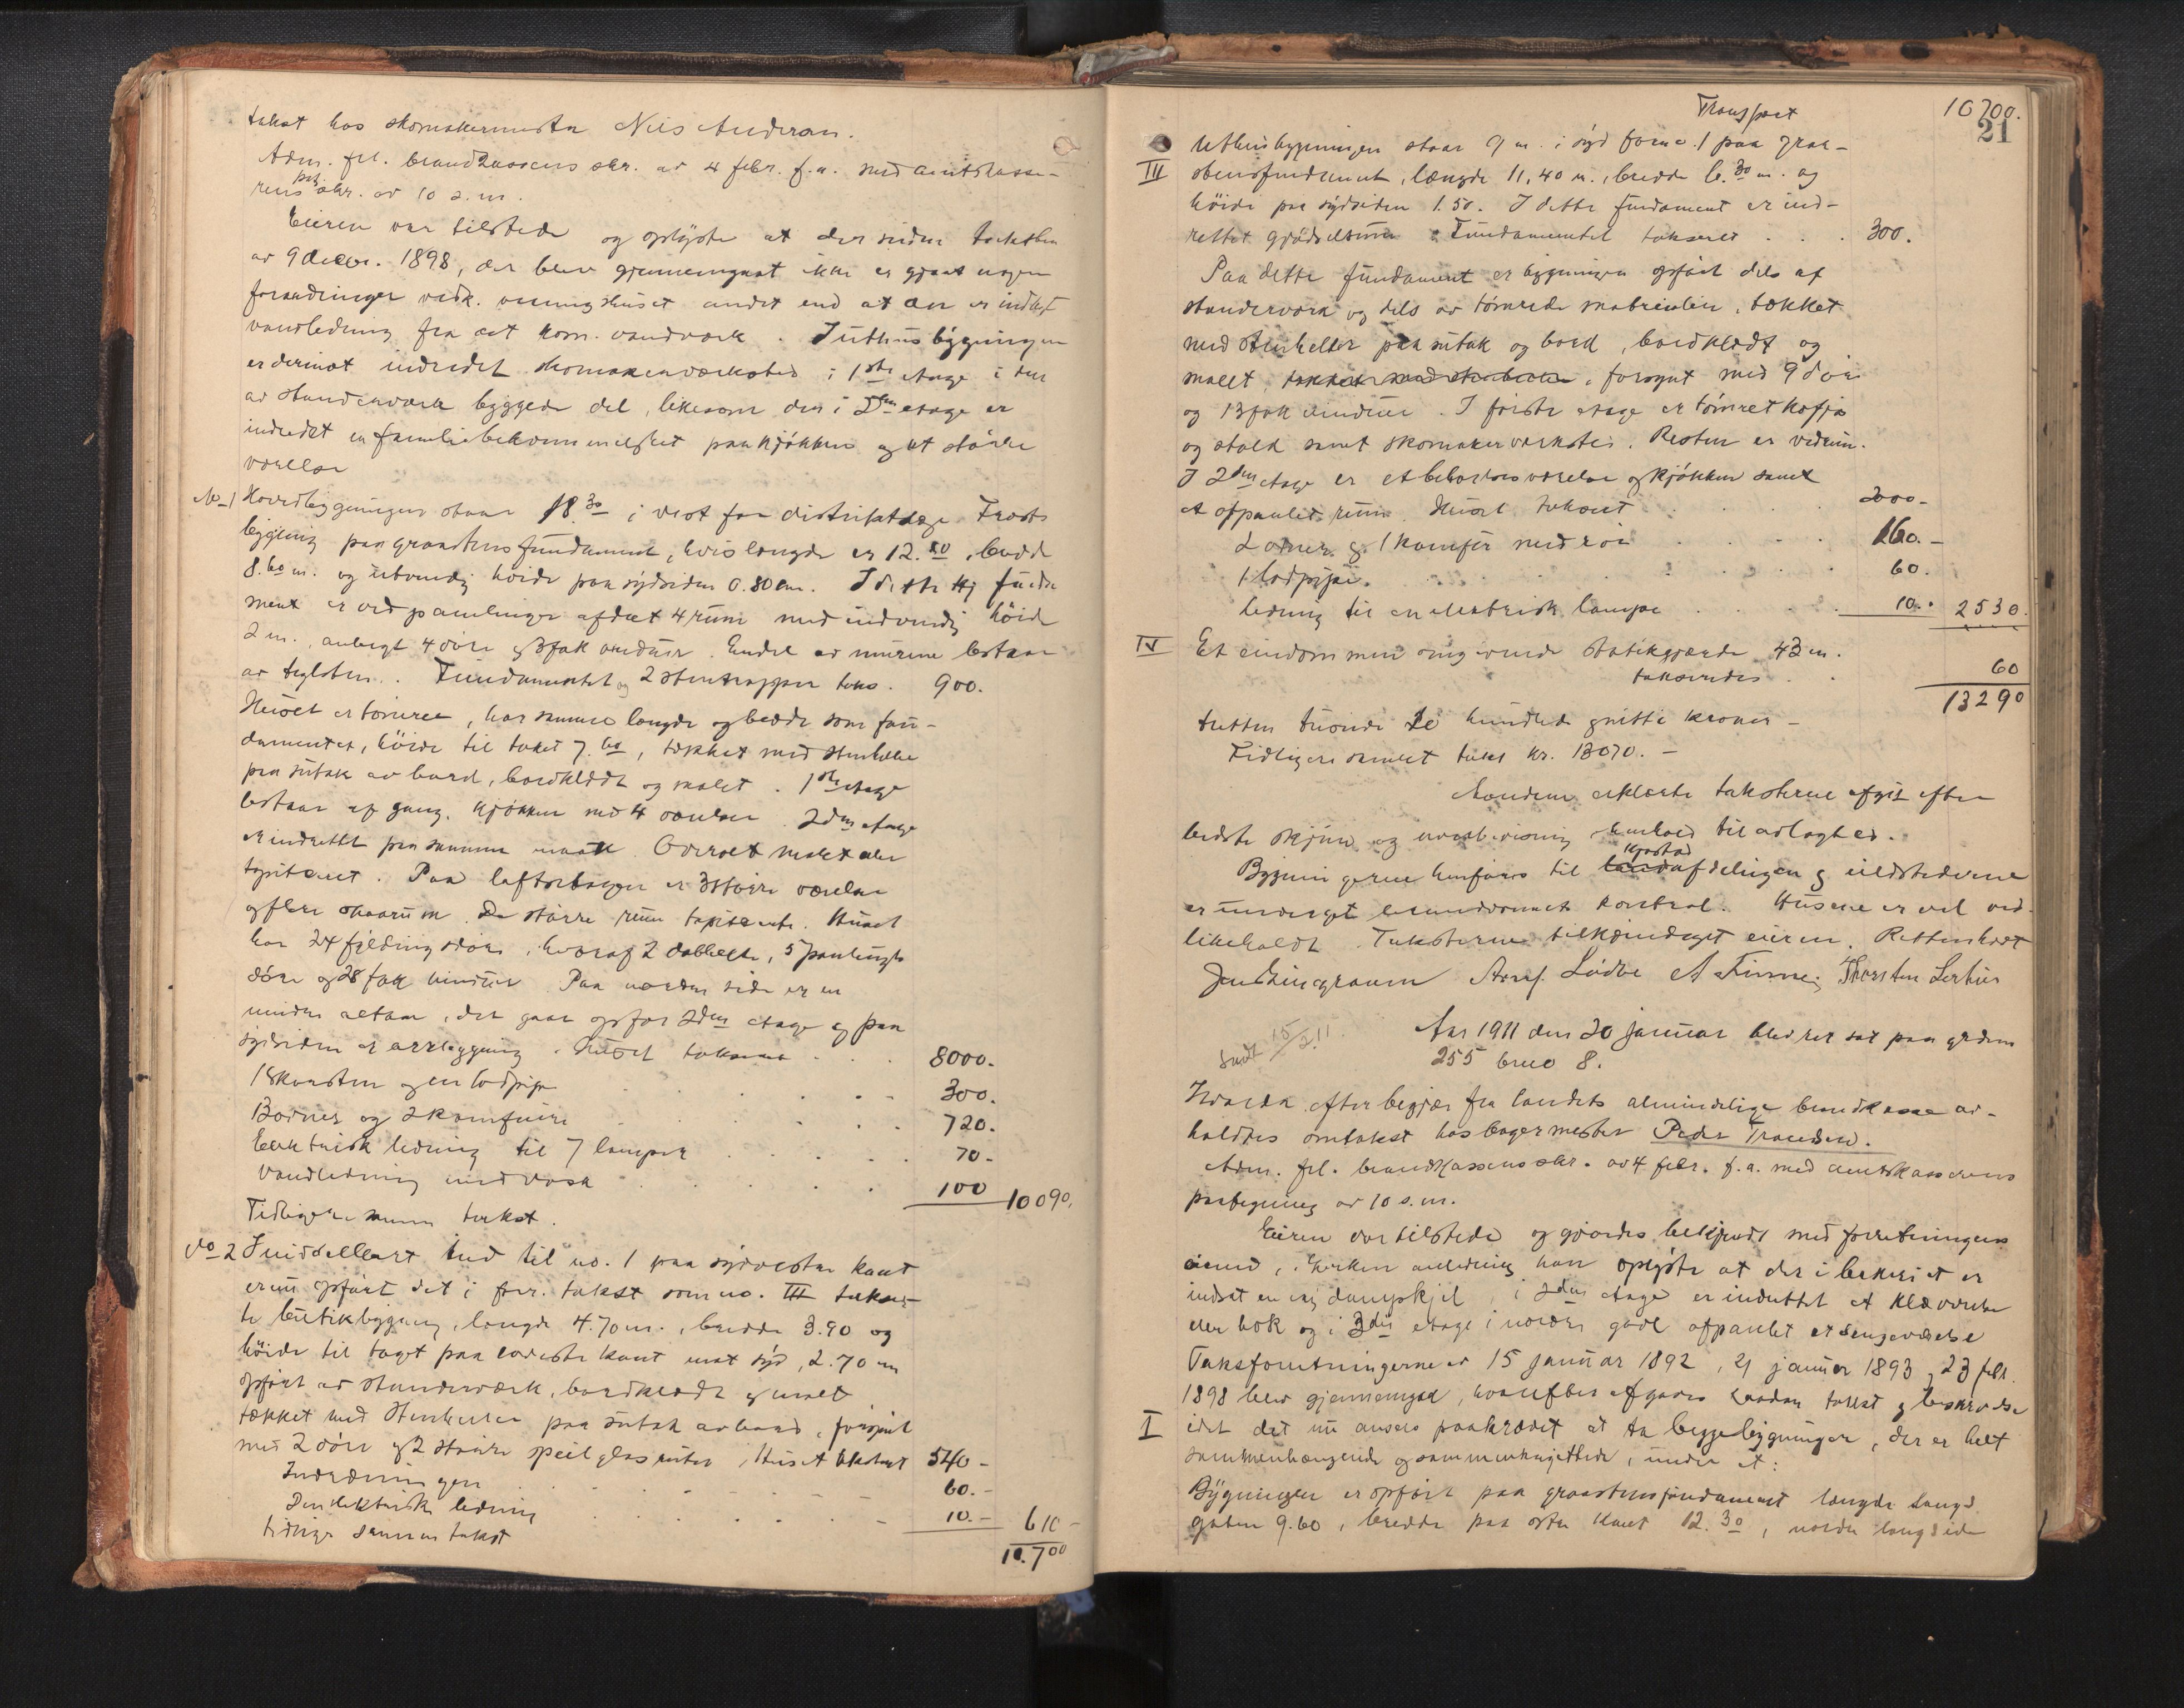 takst hos skomakermester Nils Anderson.
Adm. frl. brandkassens skr. av 4 febr. f.a. med amtskasse-
rens påt. skr. av 10 s.m.
Eieren var tilstede og oplyste at der siden taksten
av 9 decbr. 1898, der blev gjennemgaat ikke er gjort nogen
forandringer vedk. vaaningshuset andet end at der er indlagt
vandledning fra det kom. vandværk. I uthusbygningen
er derimot indredet skomakerværksted i 1ste etage i den
av standerværk byggede del, likesom der i 2den etage er
indredet en familiebekvemmelighet paa kjøkken og et større
værelse
No 1 Hovedbygningen staar 18.30 i vest for distriktslæge Frosts
bygning paa graastensfundament, hvis længde er 12.80, bredde
8.60 m. og utvendig høide paa sydsiden 0.80 cm. I dette funda-
ment er ved panelinger afdelt 4 rum med indvendig høide
2 m., anbragt 4 døre og 3 fak vinduer. Endel av murene bestaar
av teglsten. Fundamentet og 2 stentrapper taks. 900.
Huset er tømret, har samme længde og bredde som fun-
damentet, høide til taket 7.60, tækket med stenheller
paa sutak av bord, bordklædt og malet. 1ste etage
bestaar af gang, kjøkken med 4 værelser. 2den etage
er indrettet paa samme maate. Overalt malet eller
tapiteret. Paa loftsetagen er 3 større værelser
og flere skaarum. De større rum tapiserte. Huset
har 24 fyldingsdøre, hvoraf 2 dobbelte, 5 panelingte
døre og 28 fak vinduer. Paa nordre side er en
mindre altan, der gaar op for 2den etage og paa
sydsiden et arkbygning. Huset takseret . . . 8000.
1 Skorsten og en lodpipe . . . . . 300.
13 ovner og 2 komfuire . . . . . 720.
Elektrisk ledning til 7 lamper . . . . . 70-
Vandledning med vask . . . . . 100 10090.
Tidligere samme takst.
No 2 Umiddelbart ind til no. 1 paa sydvestre kant
er nu opført det i forr. takst som no. III takser-
te butikbygning, længde 4.70 m., bredde 3.90 og
høide til taget paa laveste kant mot syd, 2.70 m
opført av standerværk, bordklædt og malet
tækket med stenheller paa sutak av bord, forsynt
med 2 døre og 2 større speilglasruter, Huset takseret 540-
Indredningen . . . . . 60.-
Den elektrisk ledning . . . . . 10.- 610-
tidlige samme takst
10.700
Transport 10700.
21
III Uthusbygningen staar 9 m. i syd for no. 1 paa graa-
stensfundament, længde 11,40 m., bredde 6.30 m. og
høide paa sydsiden 1.50. I dette fundament er ind-
rettet gjødselrum. Fundamentet takseret . . . 300.
Paa dette fundament er bygningen opført dels af
standerværk og dels av tømrede materialier, tækket
med stenheller paa sutak og bord, bordklædt og
malet, tækket med stenheller, forsynt med 9 døre
og 13 fak vinduer. I første etage er tømret kofjøs
og stald samt skomakerværksted. Resten er vedrum.
I 2den etage er et beboelsesværelse og kjøkken samt
et afpanlet rum. Huset takseret . . . . 2000-
2 ovner og 1 komfur med rør . . . . 160.-
1 lodpipe. . . . . 60.
ledning til en elektrisk lampe . . . . 10.- 2530.
IV Et eiendommen omgivende stakitgjærde 42 m.
takseredes . . 60
13290
tretten tusinde to hundrede og nitti kroner -
Tidligere samlet takst kr. 13070.-
Mændene erklærte taksterne afgit efter
bedste skjøn og overbevisning i henhold til avlagt ed.
Bygningerne henføres til landafdelingen kjøstad og ildstederne
er undergit brandvæsnets kontrol. Husene er vel ved-
likeholdt. Taksterne tilkjendegit eieren. Retten hævet
Jens Lindgraum Arnof. Lødve A Finne, Thorsten Lerhus
Sendt 15/2.11.
Aar 1911 den 20 januar blev ret sat paa gr.dnm
255 brno 8.
Hvorda efter begjær fra landets almindelige brandkasse av-
holdtes omtakst hos bagermester Peder Trondsen.
Adm. frl. brandkassens skr. av 4 febr. f.a. med amtskasserens
paategning av 10 s.m.
Eieren var tilstede og gjordes bekjendt med forretningens
øiemed, i hvilken anledning han oplyste at der i bakeriet er
indsat en ny dampkjel, i 2den etage er indrettet et klæværelse
eller kok og i 3die etage i nordre gavl afpanlet et sengeværelse
Taksforretningerne av 15 januar 1892, 21 januar 1893, 23 febr.
1898 blev gjennemgaat, hvorefter afgaves saadan takst og beskrivelse
I idet det nu ansees paakrævet at ta begge bygninger, der er helt
sammenhængende og sammenbyggede, under et:
Bygningen er opført paa graastensfundament længde langs
gaten 9.60, bredde paa østre kant 12.30, nordre langside